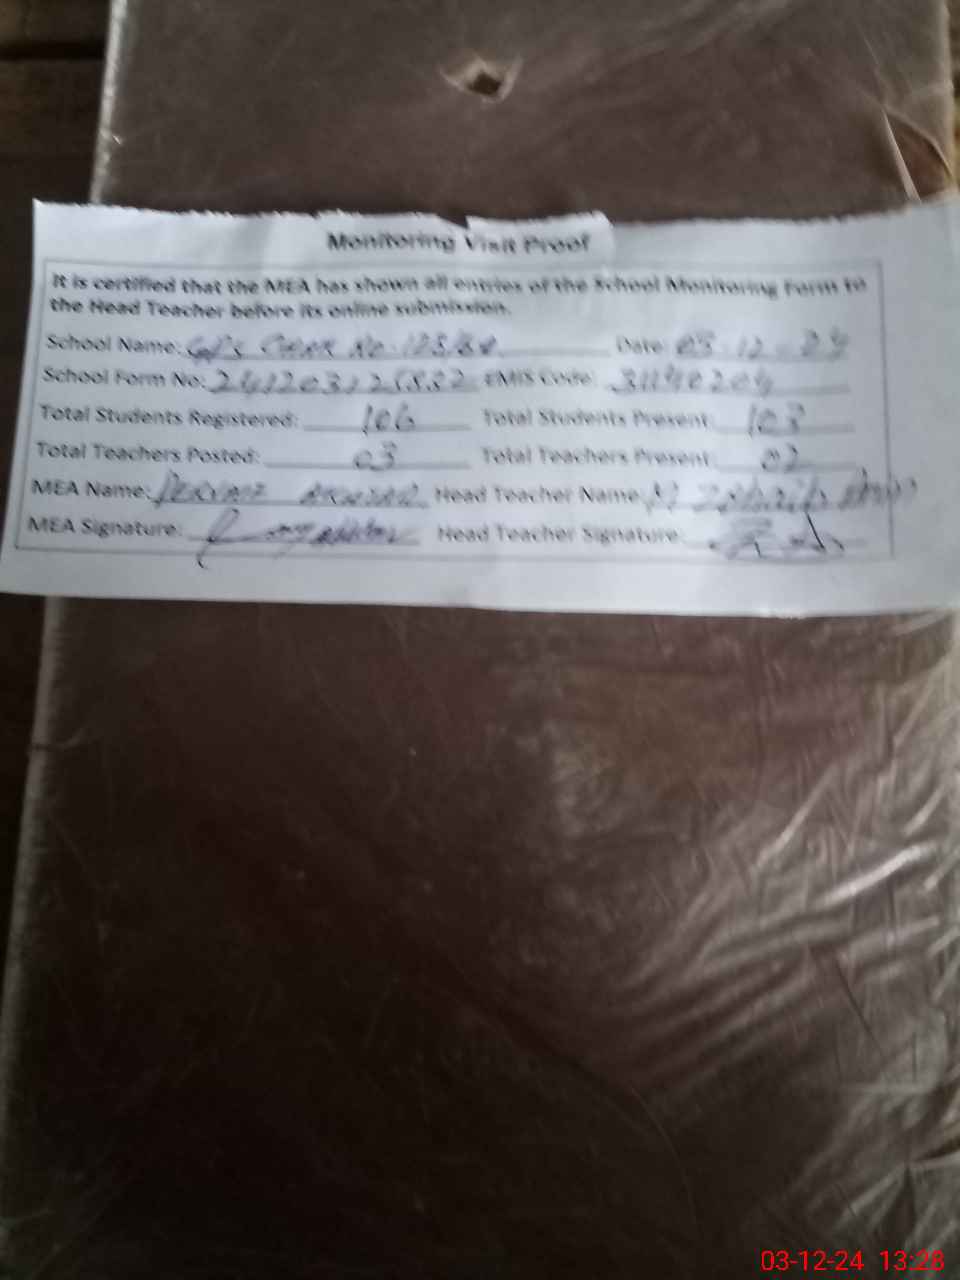 Monitoring Visit Proof
It is certified that the MEA has shown all entries of the School Monitoring Form to
the Head Teacher before its online submission.
School Name: GPS Chak No. Date: 03-12-24
School Form No: EMIS Code: 31140204
Total Students Registered: 106 Total Students Present: 103
Total Teachers Posted: 03 Total Teachers Present: 02
MEA Name: Head Teacher Name: M
MEA Signature: Head Teacher Signature:
03-12-24 13:28